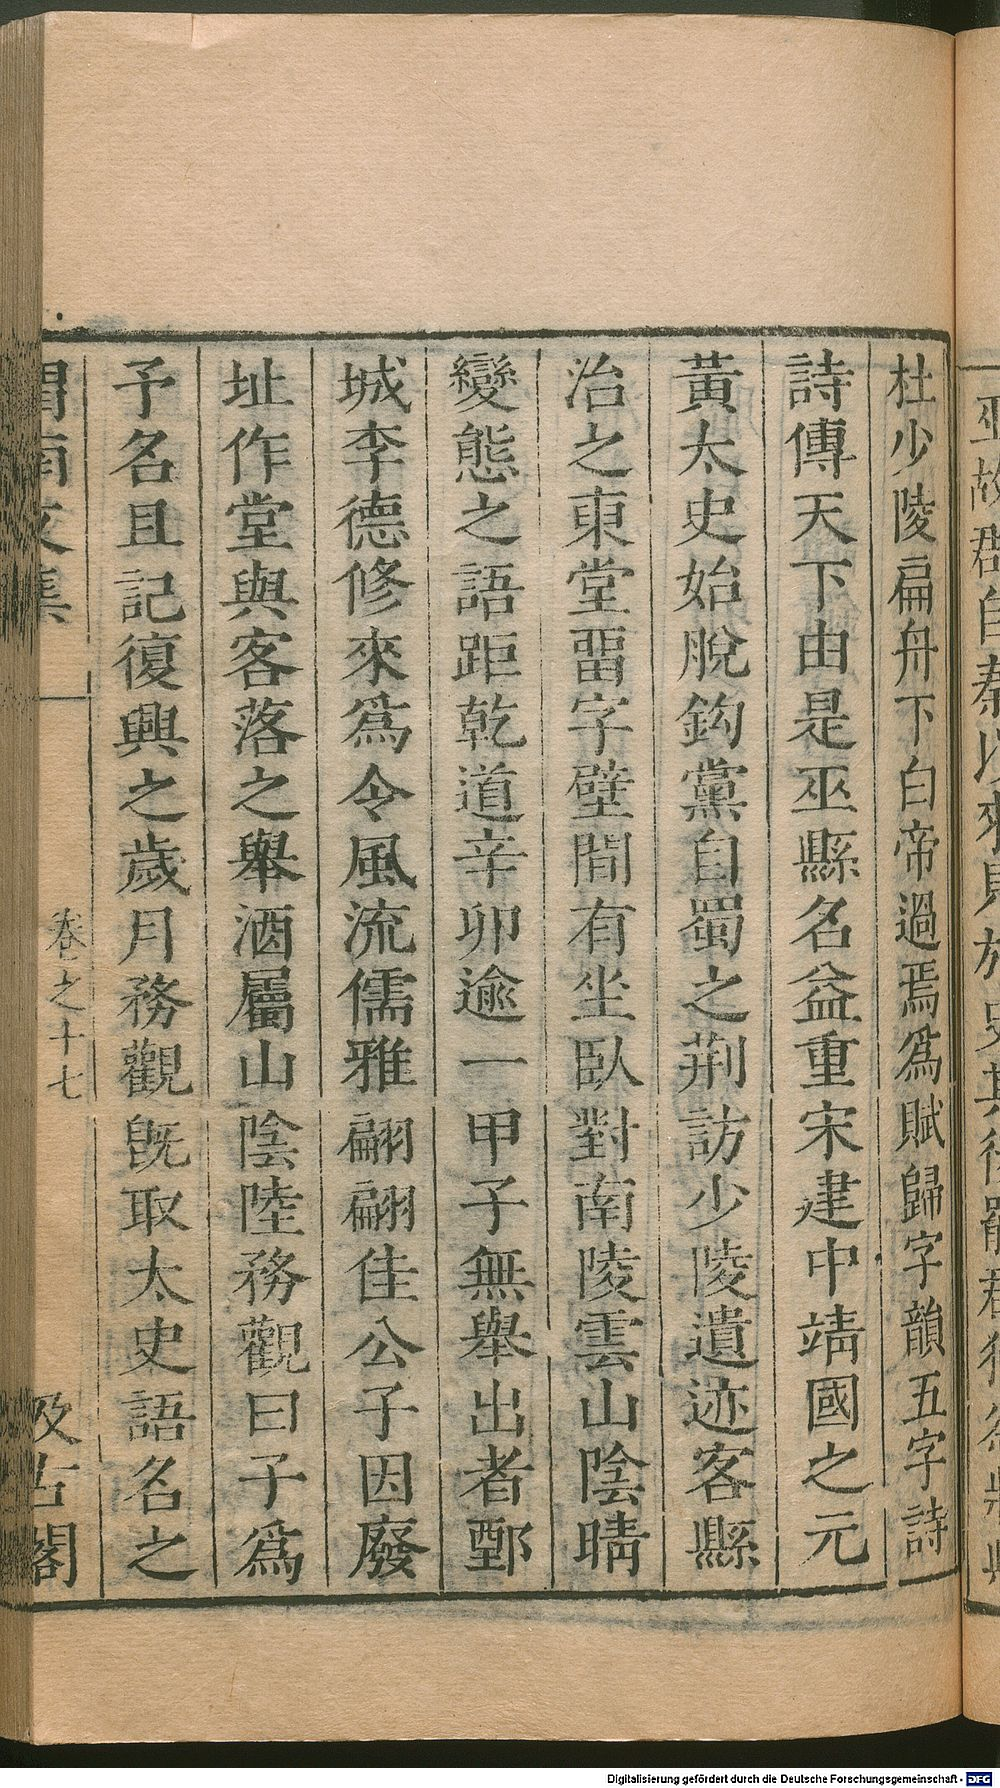 杜少陵扁舟下白帝過焉爲賦歸字韻五字詩
詩傳天下由是巫縣名益重宋建中靖國之元
黃太史始脫鈎黨自蜀之荆訪少陵遺迹客縣
治之東堂畱字壁間有坐臥對南陵雲山陰晴
變態之語距乾道辛卯逾一甲子無舉出者鄄
城李德修來爲令風流儒雅翩翩佳公子因廢
址作堂與客落之舉酒屬山陰陸務觀曰子爲
予名且記復興之歲月務觀旣取太史語名之
渭南文集
卷之十七
汲古閣
Digitalisierung gefördert durch die Deutsche Forschungsgemeinschaft - DFG